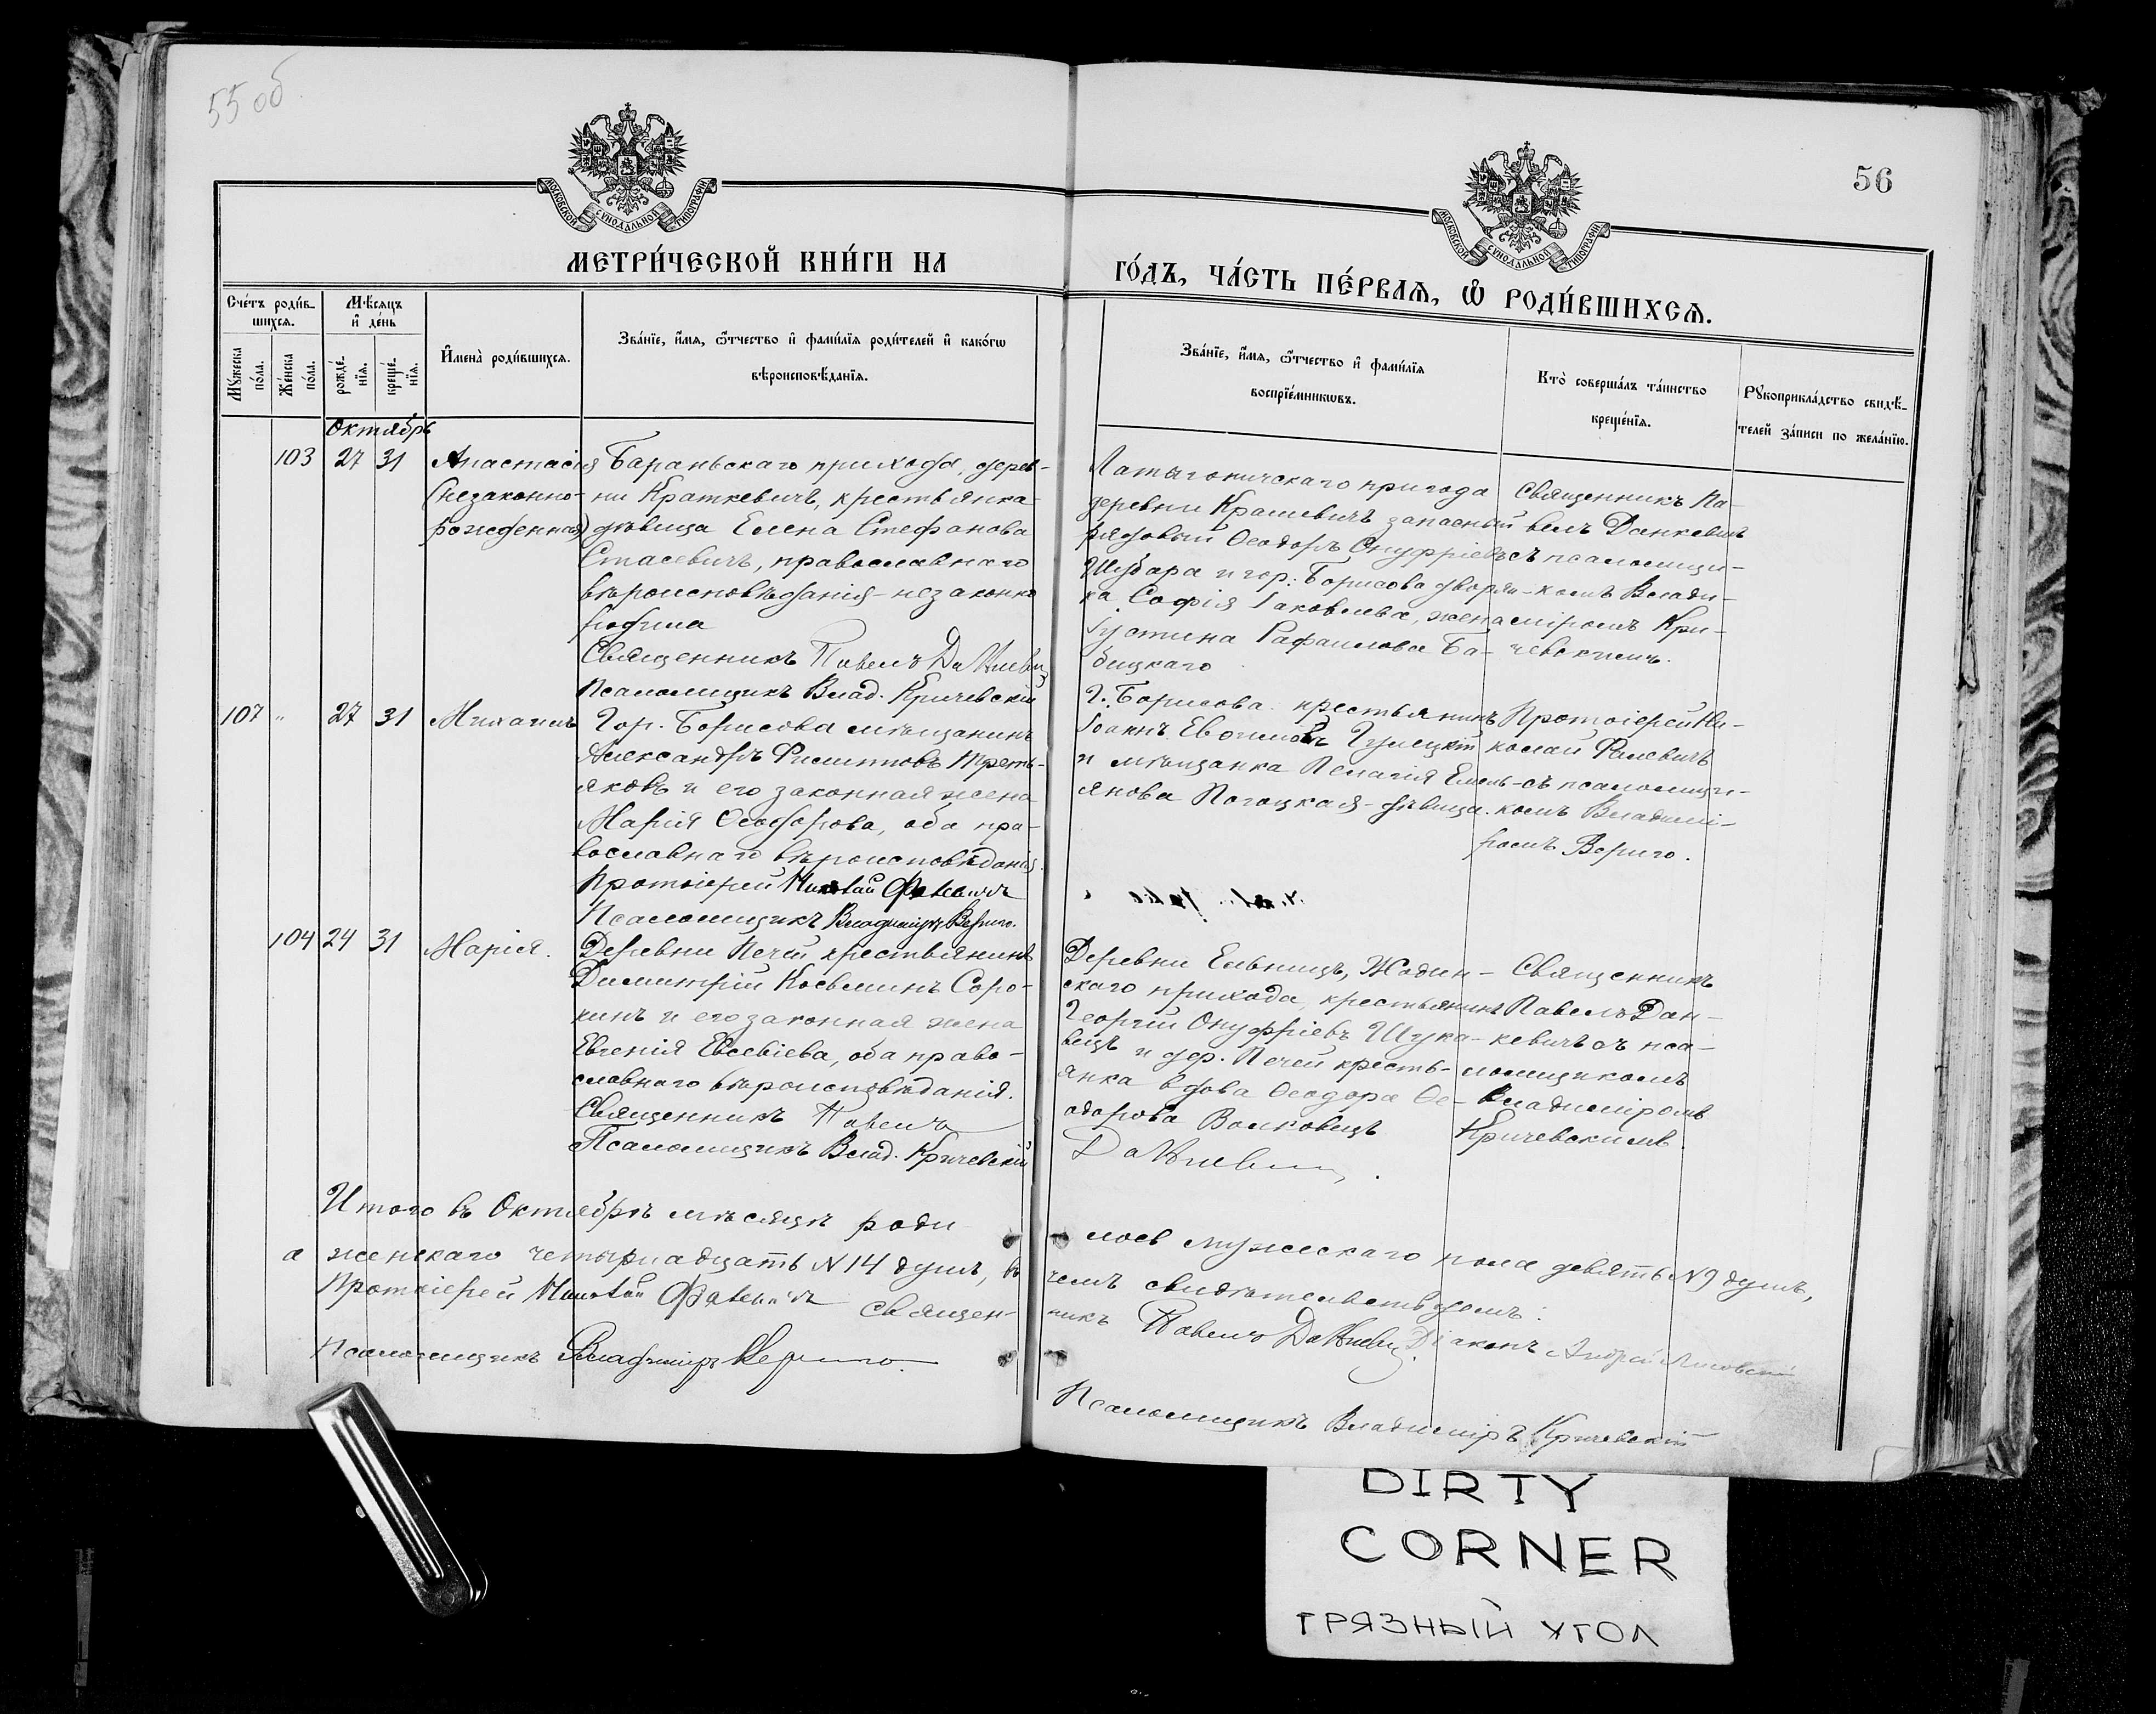 55 об
56
МОСКОВСКОЙ СѴНОДАЛЬНОЙ ТИПОГРАФІИ
МОСКОВСКОЙ СѴНОДАЛЬНОЙ ТИПОГРАФІИ
МЕТРИ́ЧЕСКОЙ КНИ́ГИ НА
ГО́ДЪ, ЧА́СТЬ ПЕ́РВАѦ, Ѽ РОДИ́ВШИХСѦ.
Сче́тъ роди́в-
шихсѧ.
Мꙋ́жеска по́ла.
Же́нска по́ла.
Мѣ́сѧцъ
и҆ де́нь
рожде́-
нїѧ.
креще́-
нїѧ.
И҆мена̀ роди́вшихсѧ.
Зва́нїе, и҆́мѧ, ѻ҆́тчество и҆ фами́лїѧ роди́телей и҆ како́гѡ
вѣроисповѣ́данїѧ.
Зва́нїе, и҆́мѧ, ѻ҆́тчество и҆ фами́лїѧ
воспрїе́мникѡвъ.
Кто̀ соверша́лъ та́инство
креще́нїѧ.
Рꙋкоприкла́дство свидѣ́-
телей за́писи по жела́нїю.
Октябрь
103 27 31 Анастасія
(незаконно-
рожденная)
Бараньскаго прихода, дерев-
ни Краткевичъ, крестьянка
дѣвица Елена Стефанова
Стасевичъ, православнаго
вѣроисповѣданія - незаконно
родила
Священникъ Павелъ Данкевичъ
Псаломщикъ Влад. Кричевскій
Латыгоничскаго прихода
деревни Крашевичъ запасный
рядовый Ѳеодоръ Онуфріевъ
Шубара и гор. Борисова дворян-
ка Софія Іаковлева, жена
Іустина Рафаилова Ба-
бицкаго
Священникъ Па-
велъ Данкевичъ
съ псаломщи-
комъ Влади-
міромъ Кри-
чевскимъ.
107 " 27 31 Михаилъ
Гор. Борисова мѣщанинъ
Александръ Филипповъ Треть-
яковъ и его законная жена
Марія Ѳеодорова, оба пра-
вославнаго вѣроисповѣданія.
Протоіерей Николай Фалевичъ
Псаломщикъ Владиміръ Вериго.
Г. Борисова крестьянинъ
Іоаннъ Евѳиміевъ
и мѣщанка Пелагія Емель-
янова - дѣвица.
Протоіерей Ни-
колай Фалевичъ
съ псаломщи-
комъ Владимі-
ромъ Вериго.
104 24 31 Марія.
Деревни Печей крестьянинъ
Димитрій Косьминъ Соро-
кинъ и его законная жена
Евгенія Евсевіева, оба право-
славнаго вѣроисповѣданія.
Священникъ Павелъ
Псаломщикъ Влад. Кричевскій
Деревни Ельницъ, Жодин-
скаго прихода, крестьянинъ
Георгій Онуфріевъ Шука-
вецъ и дер. Печей кресть-
янка вдова Ѳеодора Ѳе-
одорова Волковецъ
Данкевичъ.
Священникъ
Павелъ Дан-
кевичъ съ пса-
ломщикомъ
Владиміромъ
Кричевскимъ.
Итого въ Октябрѣ мѣсяцѣ роди
лось мужескаго пола девять № 9 душъ,
а женскаго четырнадцать № 14 душъ, въ
чемъ свидѣтельствуемъ:
Протоіерей Николай Фалевичъ Священ-
никъ Павелъ Данкевичъ. Діаконъ Андрей
Псаломщикъ Владиміръ Вериго.
Псаломщикъ Владиміръ Кричевскій
DIRTY
CORNER
ГРЯЗНЫЙ УГОЛ